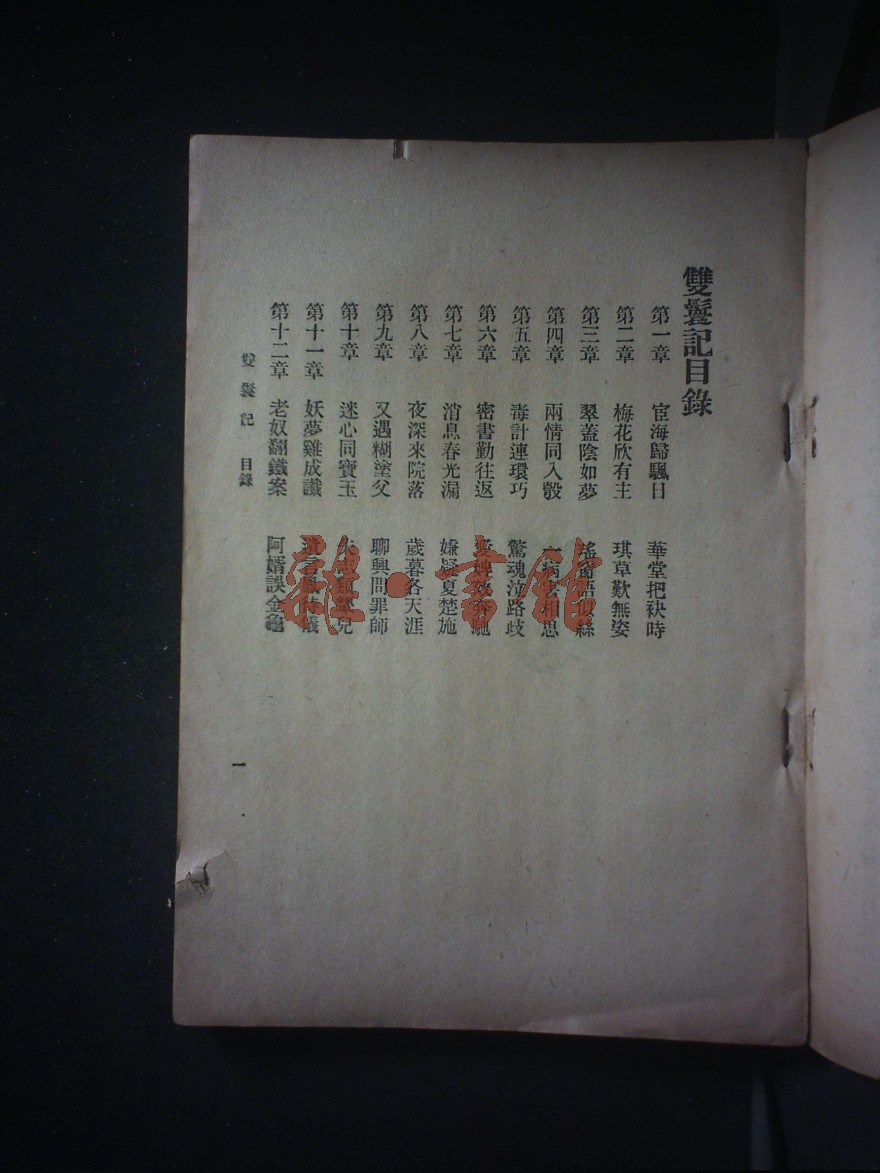 雙鬟記目錄
第一章 宦海歸颿日 華堂把袂時
第二章 梅花欣有主 琪草歎無姿
第三章 翠蓋陰如夢 瑤窗語似絲
第四章 兩情同入彀 一病各相思
第五章 毒計連環巧 驚魂泣路歧
第六章 密書勤往返
第七章 消息春光漏 嫌疑夏楚施
第八章 夜深來院落 歲暮各天涯
第九章 又遇糊塗父 聊興問罪師
第十章 迷心同寶玉 兒
第十一章 妖夢雞成讖 遺言
第十二章 老奴翻鐵案 阿婿誤金龜
雙鬟記 目錄
一
雜·書館